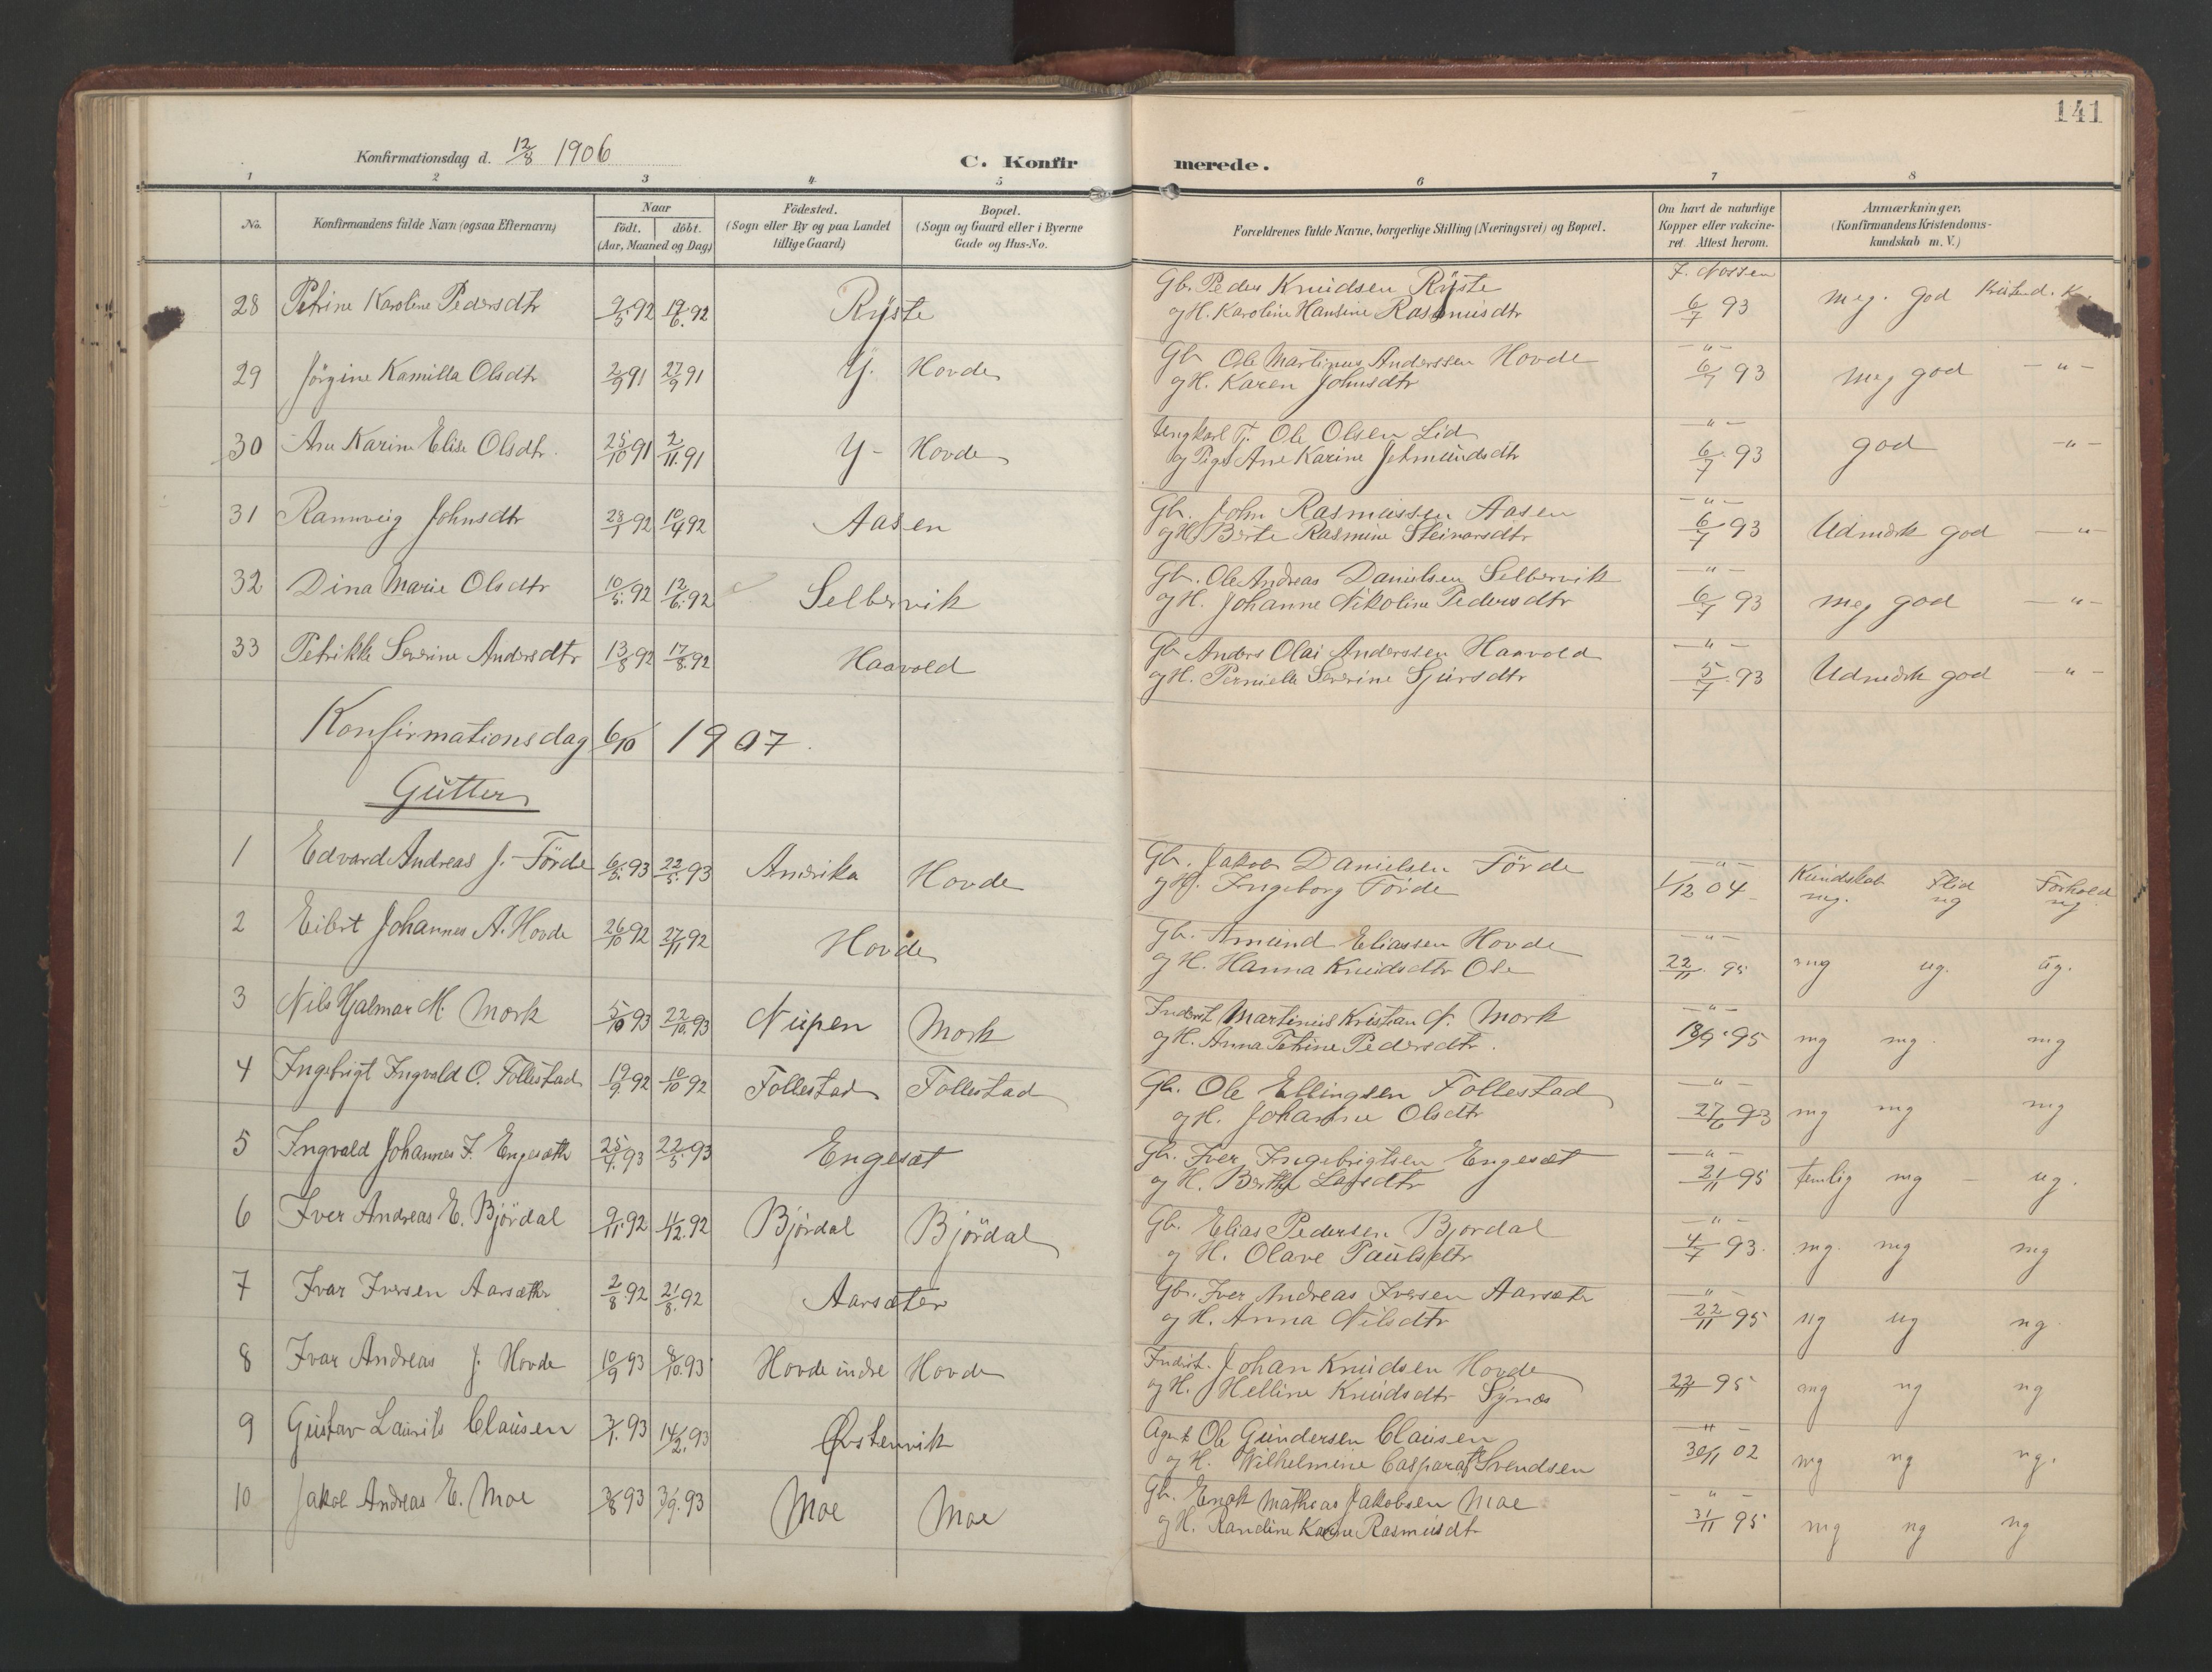 141
Konfirmationsdag d. 12/8 1906
C. Konfirmerede.
1 2 3 4 5 6 7 8
No. Konfirmandens fulde Navn (ogsaa Efternavn) Naar født. døbt. (Aar, Maaned og Dag) Födested. (Sogn eller By og paa Landet tillige Gaard) Bopæl. (Sogn og Gaard eller i Byerne Gade og Hus-No. Forældrenes fulde Navne, borgerlige Stilling (Næringsvei) og Bopæl. Om havt de naturlige Kopper eller vakcineret. Attest herom. Anmærkninger. (Konfirmandens Kristendomskundskab m. V.)
28 Petrine Karoline Pedersdtr 9/5 92 19/6. 92 Ryste Gb. Peder Knudsen Ryste J. Nossen
og H. Karoline Hansine Rasmusdtr 6/7 93 meg. god
29 Jörgine Kamilla Olsdtr 2/9 91 27/9 91 Y. Hovde Gb Ole Martinus Anderssen Hovde -"-
og H. Karen Johnsdtr 6/7 93 meg god -"-
30 Ane Karine Elise Olsdtr. 25/10 91 2/11. 91 Y- Hovde Ungkarl Tj. Ole Olsen Lid -"-
og Pige Ane Karine Jetmundsdtr 6/7 93 god -"-
31 Rannveig Johnsdtr 28/1 92 10/4 92 Aasen Gb. John Rasmussen Aasen -"-
og H Berte Rasmine Steinarsdtr 6/7 93 Udmerk god -"-
32 Dina Marie Olsdtr 10/5. 92 12/6. 92 Selbervik Gb. Ole Andreas Danielsen Selbervik -"-
og H. Johanne Nikoline Pedersdtr 6/7 93 meg god -"-
33 Petrikke Severine Andersdtr 13/8 92 17/8. 92 Haavold Gb Anders Olai Anderssen Haavold -"-
og H. Pernielle Severine Sjursdtr 5/7. 93 Udmerk god -"-
Konfirmationsdag 6/10 1907.
Gutter
1 Edvard Andreas J. Förde 6/5. 93 22/5. 93 Amerika Hovde Gb. Jakob Danielsen Förde -"- Kundskab Flid Forhold
og H. Ingeborg Förde 1/12 04 mg. mg mg
2 Eilert Johannes A. Hovde 26/10 92 27/11 92 Hovde Gb. Amund Eliassen Hovde -"-
og H. Hanna Knudsdtr Ose 22/11. 95 mg ug. ug.
3 Nils Hjalmar M. Mork 5/10 93 22/10. 93 Nupen Mork Inderst Martinus Kristian N. Mork -"-
og H. Anna Petrine Pedersdtr. 18/9. 95 mg mg. mg
4 Ingebrigt Ingvald O. Follestad 19/9. 92 16/10 92 Follestad Follestad Gb. Ole Ellingsen Follestad -"-
og H. Johanne Olsdtr 27/6 93 mg mg mg
5 Ingvald Johannes I. Engesæth 25/4. 93 22/5. 93 Engesæt Gb. Iver Ingebrigtsen Engesæt -"-
og H. Berthe Larsdtr 21/11 95 temlig mg - ug.
6 Iver Andreas E. Björdal 9/11. 92 4/12. 92 Björdal Björdal Gb. Elias Pedersen Bjordal -"-
og H. Olave Paulsdtr 4/7 93. mg. mg mg
7 Ivar Iversen Aarsæther 2/8. 92 21/8. 92 Aarsæter Gbr. Iver Andreas Iversen Aarsæter -"-
og H. Anna Nilsdtr 22/11 95 ug ug ug.
8 Ivar Andreas J. Hovde 10/9 93 8/10. 93 Hovde indre Hovde Indrst. Johan Knudsen Hovde
og H. Helline Knudsdtr Synæs 22/11 95 mg ug ug
9 Gustav Laurits Clausen 3/1. 93 14/2. 93 Østenvik Agent Ole Gundersen Clausen -"-
og H. Wilhelmine Caspara Svendsen 30/11 02 mg ug ug.
10 Jakob Andreas E. Moe 3/8 93 3/9. 93 Moe Moe Gb. Enok Mathias Jakobsen Moe -"-
og H. Randine Karine Rasmusdt 3/11 95 mg ug ug